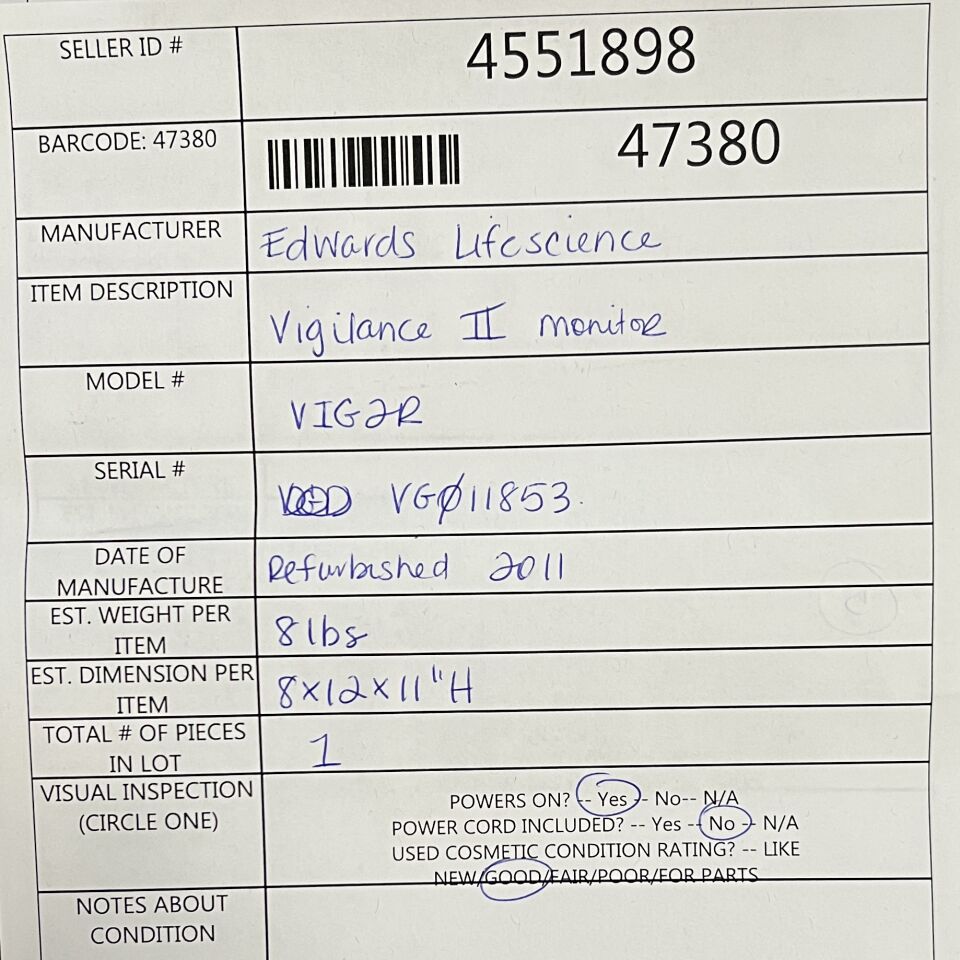 SELLER ID #
4551898
BARCODE: 47380
47380
MANUFACTURER
Edwards Lifescience
ITEM DESCRIPTION
Vigilance II monitor
MODEL #
VIG2R
SERIAL #
VGØ11853
DATE OF
MANUFACTURE
Refurbished 2011
EST. WEIGHT PER
ITEM
8 lbs
EST. DIMENSION PER
ITEM
8x12x11"H
TOTAL # OF PIECES
IN LOT
1
VISUAL INSPECTION
(CIRCLE ONE)
POWERS ON? -- Yes -- No-- N/A
POWER CORD INCLUDED? -- Yes -- No -- N/A
USED COSMETIC CONDITION RATING? -- LIKE
NEW/GOOD/FAIR/POOR/FOR PARTS
NOTES ABOUT
CONDITION